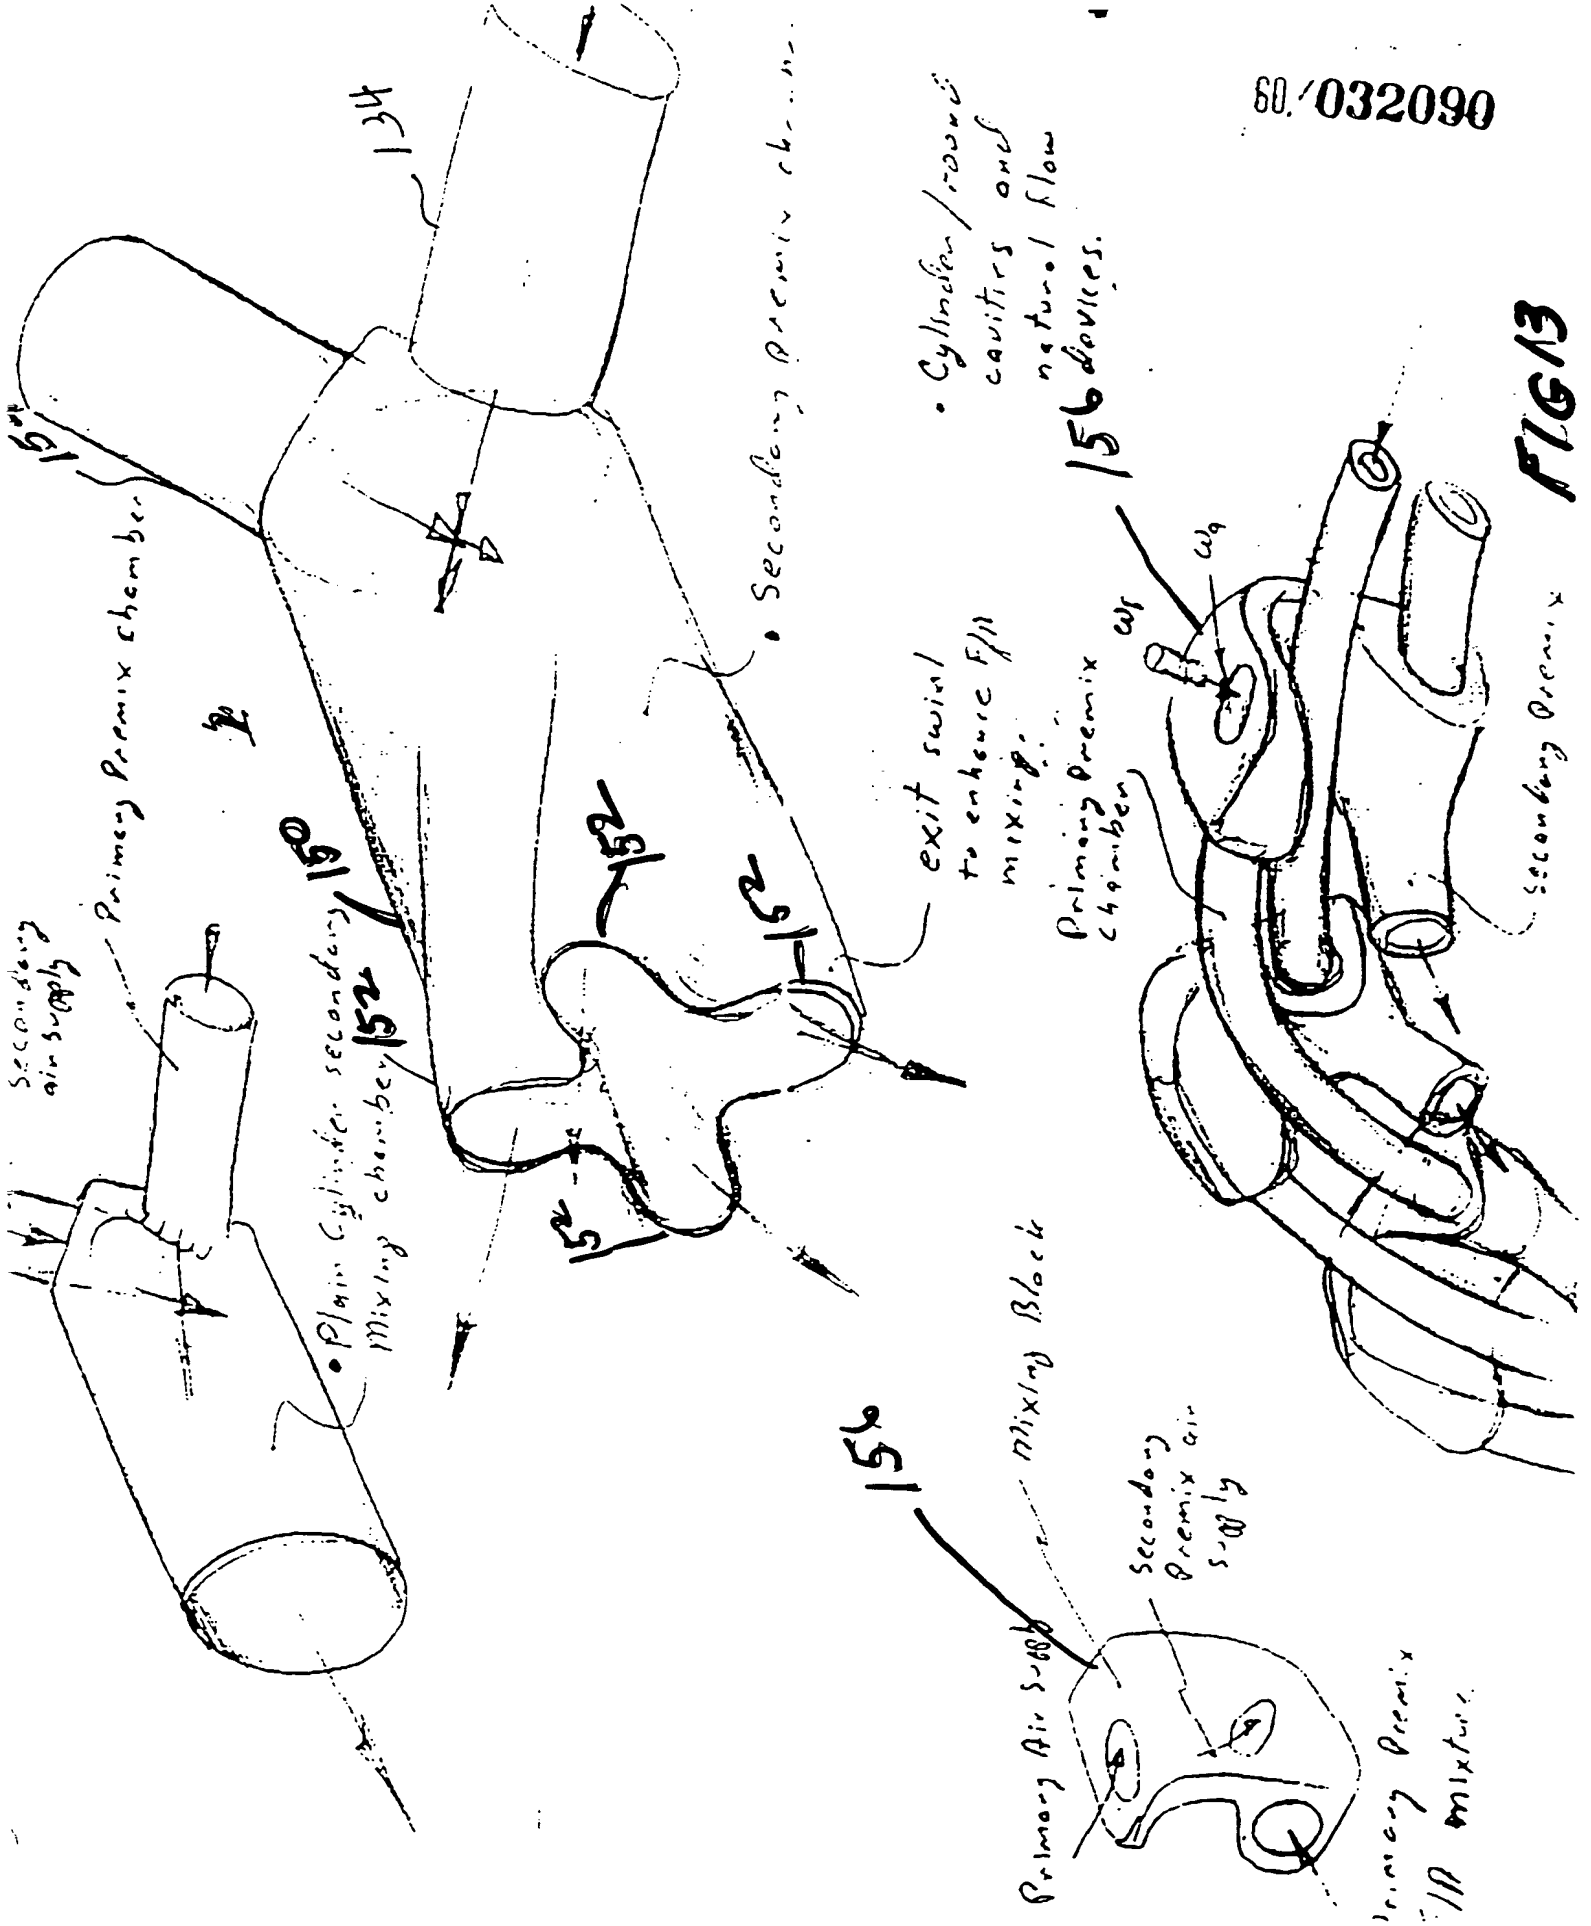 60/032090
Secondary
air supply
Primary Premix chamber
134
• Plain Cylinder secondary
Mixing chamber
150
152
152
152
152
• Secondary premix
exit swirl
to enhance F/A
mixing.
• Cylinder/round
cavities and
natural flow
devices.
156
Primary Premix
chamber
wf
wa
Secondary Premix
156
Mixing Block
Primary Air Supply
Secondary
Premix air
supply
Primary Premix
mixture
FIG 13